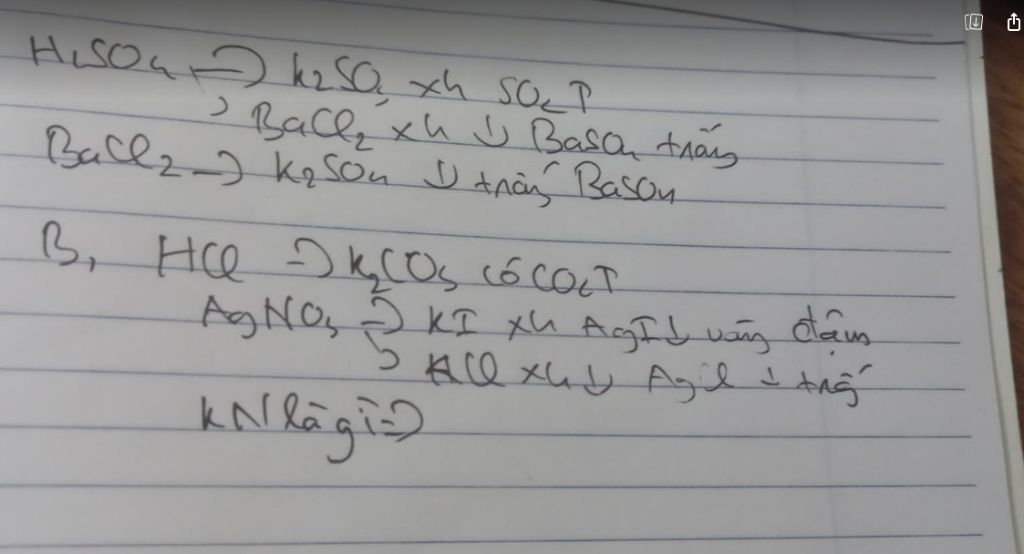 H₂SO₄ → K₂SO₃ xh SO₂↑
→ BaCl₂ xh ↓ BaSO₄ trắng
BaCl₂ → K₂SO₄ ↓ trắng BaSO₄
B, HCl → K₂CO₃ có CO₂↑
AgNO₃ → KI xh AgI↓ vàng đậm
→ HCl xh ↓ AgCl ↓ trắng
KN là gì →